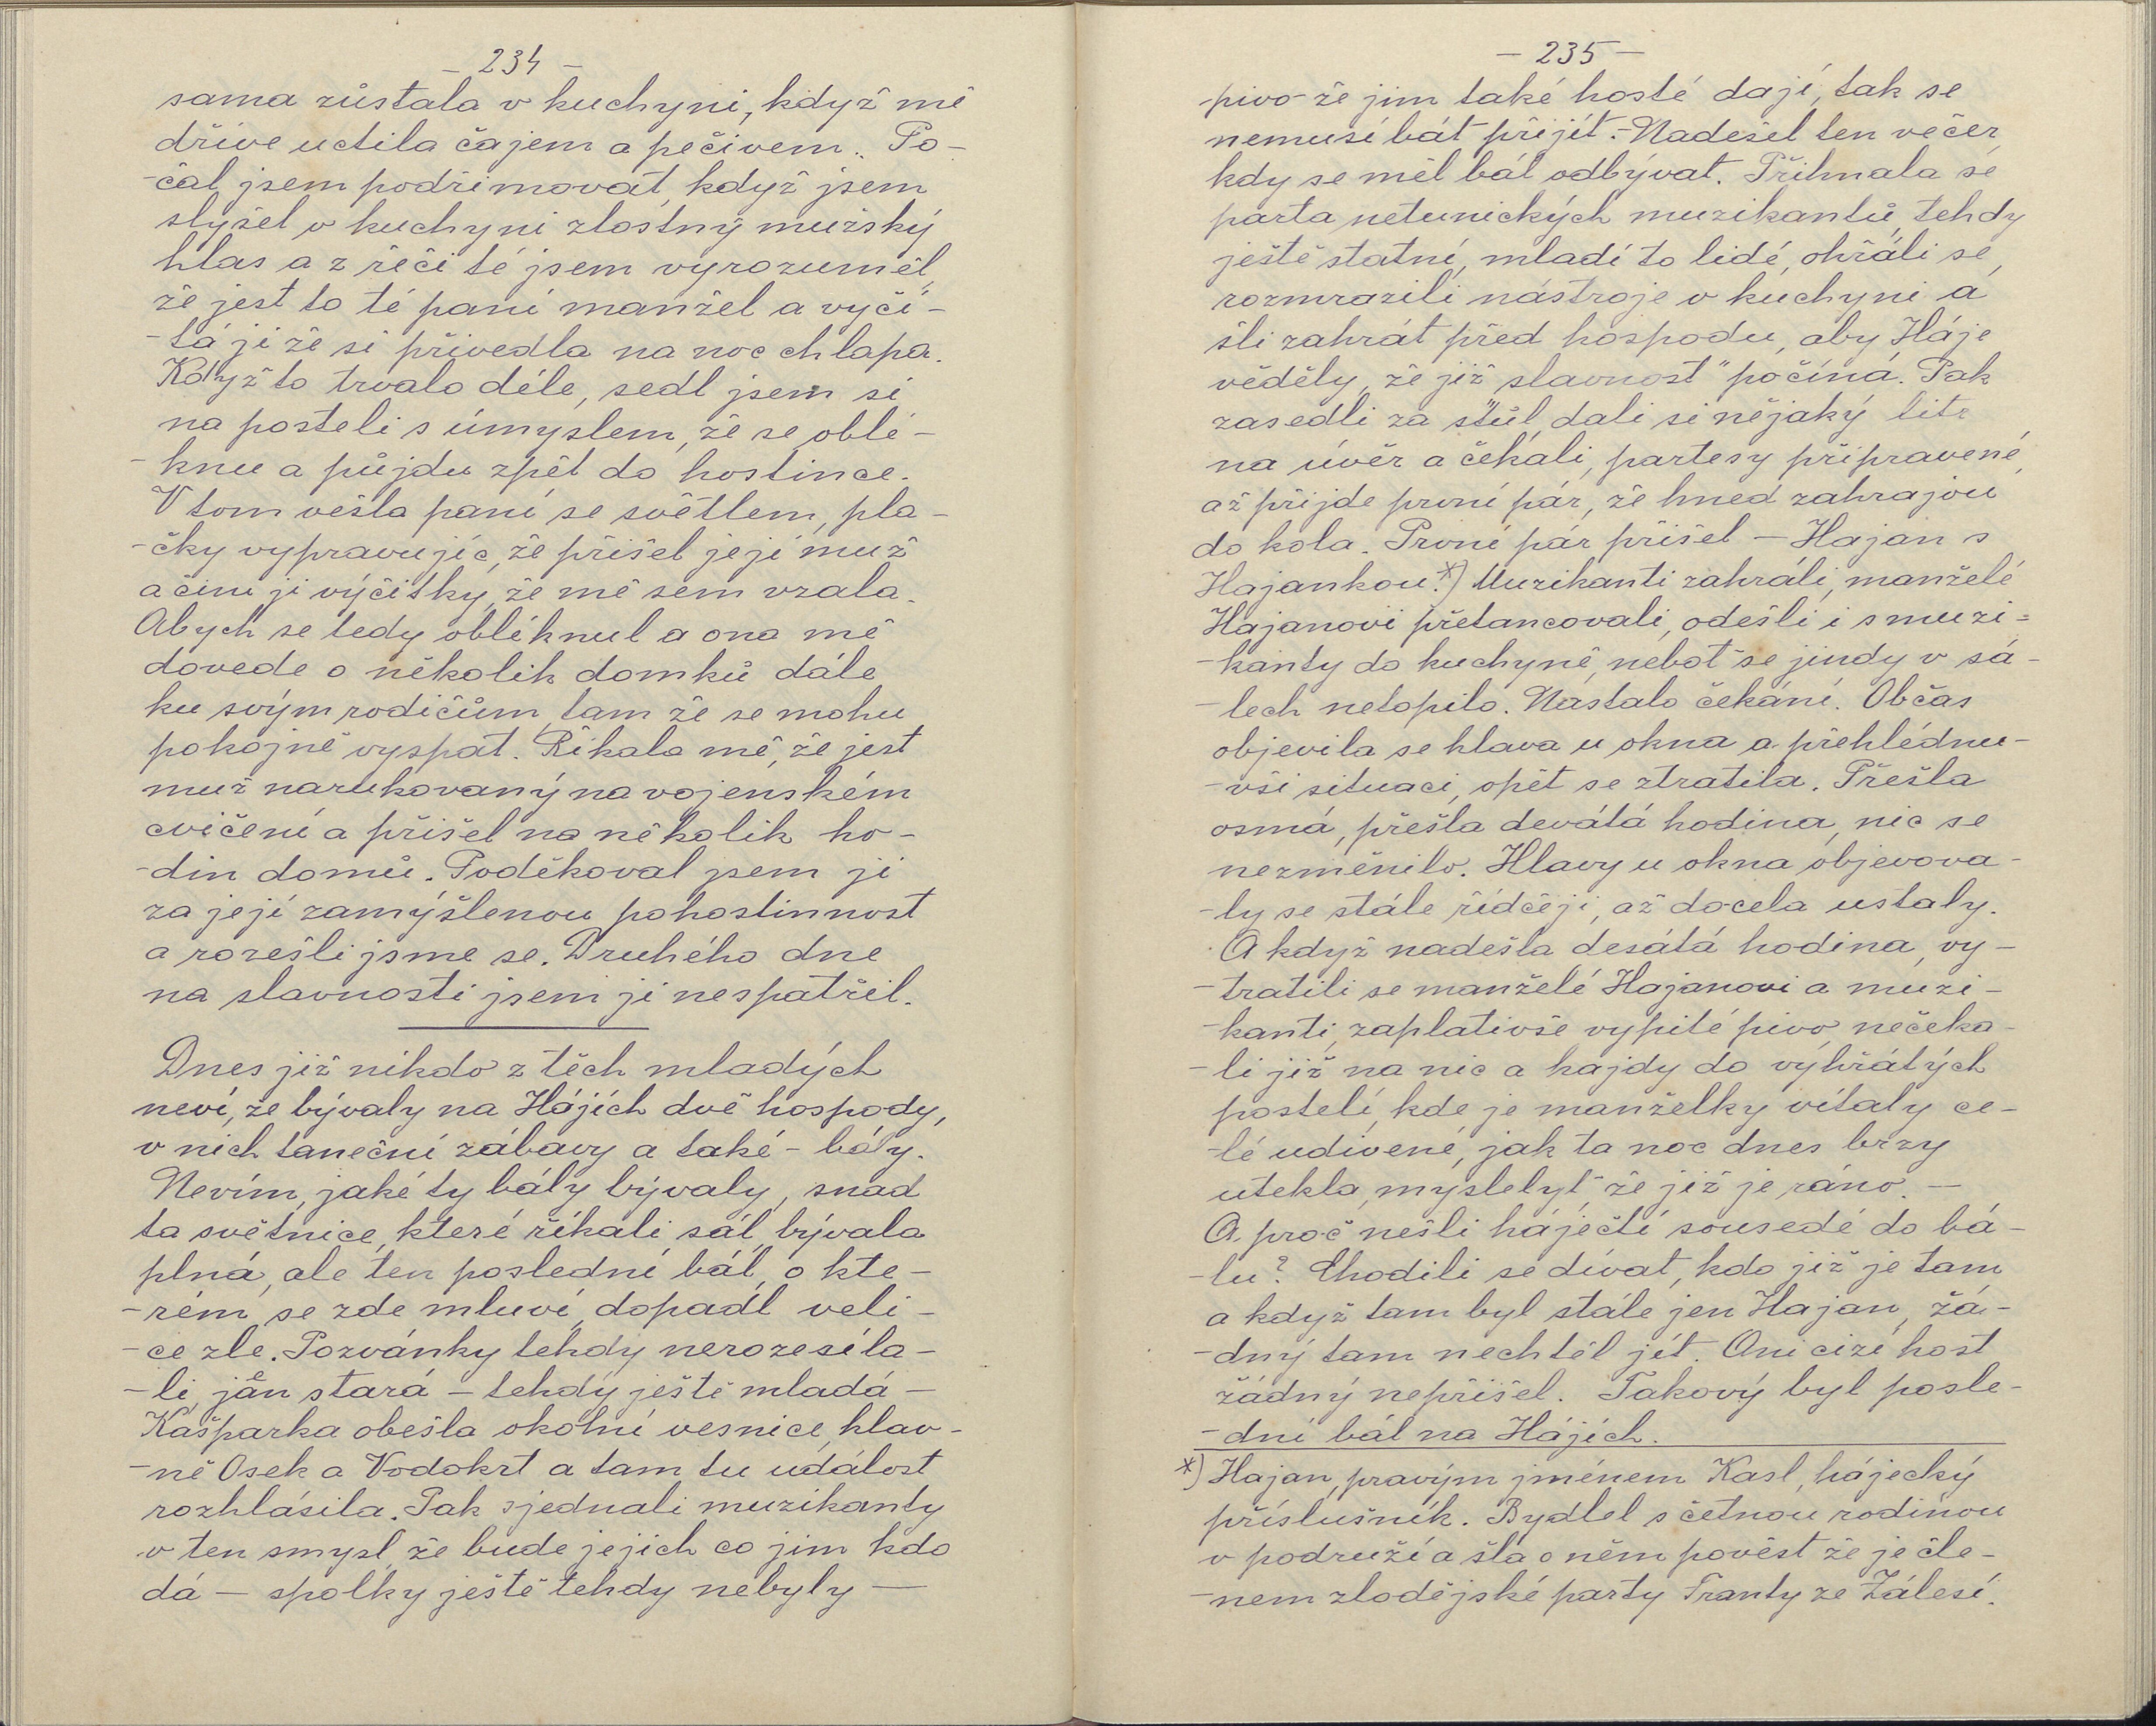 - 234 -
sama zůstala v kuchyni, když mě
dříve uctila čajem a pečivem. Po-
-čal jsem podřimovat, když jsem
slyšel v kuchyni zlostný mužský
hlas a z řeči té jsem vyrozuměl,
že jest to té paní manžel a vyčí-
-tá ji že si přivedla na noc chlapa.
Když to trvalo déle, sedl jsem si
na posteli s úmyslem, že se oblé-
-knu a půjdu zpět do hostince.
V tom vešla paní se světlem, pla-
-čky vypravujíc, že přišel její muž
a činí jí výčitky, že mě sem vzala.
Abych se tedy obléknul a ona mě
dovede o několik domků dále
ku svým rodičům, tam že se mohu
pokojně vyspat. Říkala mě, že jest
muž narukovaný na vojenském
cvičení a přišel na několik ho-
-din domů. Poděkoval jsem jí
za její zamýšlenou pohostinnost
a rozešli jsme se. Druhého dne
na slavnosti jsem jí nespatřil.
Dnes již nikdo z těch mladých
neví, že bývaly na Hájích dvě hospody,
v nich taneční zábavy a také - bály.
Nevím, jaké ty bály bývaly, snad
ta světnice, které říkali sál, bývala
plná, ale ten poslední bál, o kte-
-rém se zde mluví, dopadl veli-
-ce zle. Pozvánky tehdy nerozesíla-
-li, jen stará - tehdy ještě mladá -
Kašparka obešla okolní vesnice, hlav-
-ně Osek a Vodokrt a tam tu událost
rozhlásila. Pak sjednali muzikanty
v ten smysl, že bude jejich co jim kdo
dá - spolky ještě tehdy nebyly -
- 235 -
pivo že jim také hosté dají, tak se
nemusí bát přijít. - Nadešel ten večer,
kdy se měl bál odbývat. Přihnala se
parta netunických muzikantů, tehdy
ještě statní, mladí to lidé, ohřáli se,
rozmrazili nástroje v kuchyni a
šli zahrát před hospodu, aby Háje
věděly, že již "slavnost" počíná. Pak
zasedli za stůl, dali si nějaký litr
na úvěr a čekali, partesy připravené,
až přijde první pár, že hned zahrajou
do kola. První pár přišel - Hajan s
Hajankou.*) Muzikanti zahráli, manželé
Hajanovi přetancovali, odešli i s muzi=
-kanty do kuchyně, neboť se jindy v sá-
-lech netopilo. Nastalo čekání. Občas
objevila se hlava u okna a přehlédnu-
-vši situaci, opět se ztratila. Přešla
osmá, přešla devátá hodina, nic se
nezměnilo. Hlavy u okna objevova-
-ly se stále řídčeji, až docela ustaly.
A když nadešla desátá hodina, vy-
-tratili se manželé Hajanovi a muzi-
-kanti, zaplativše vypité pivo, nečeka-
-li již na nic a hajdy do vyhřátých
postelí, kde je manželky vítaly ce-
-lé udivené, jak ta noc dnes brzy
utekla, myslelyť že již je ráno. -
A proč nešli háječtí sousedé do bá-
-lu? Chodili se dívat, kdo již je tam
a když tam byl stále jen Hajan, žá-
-dný tam nechtěl jít. Ani cizí host
žádný nepřišel. Takový byl posle-
-dní bál na Hájích.
*) Hajan, pravým jménem Kasl, hájecký
příslušník. Bydlel s četnou rodinou
v podruží a šla o něm pověst že je čle-
-nem zlodějské party Franty ze Zálesí.